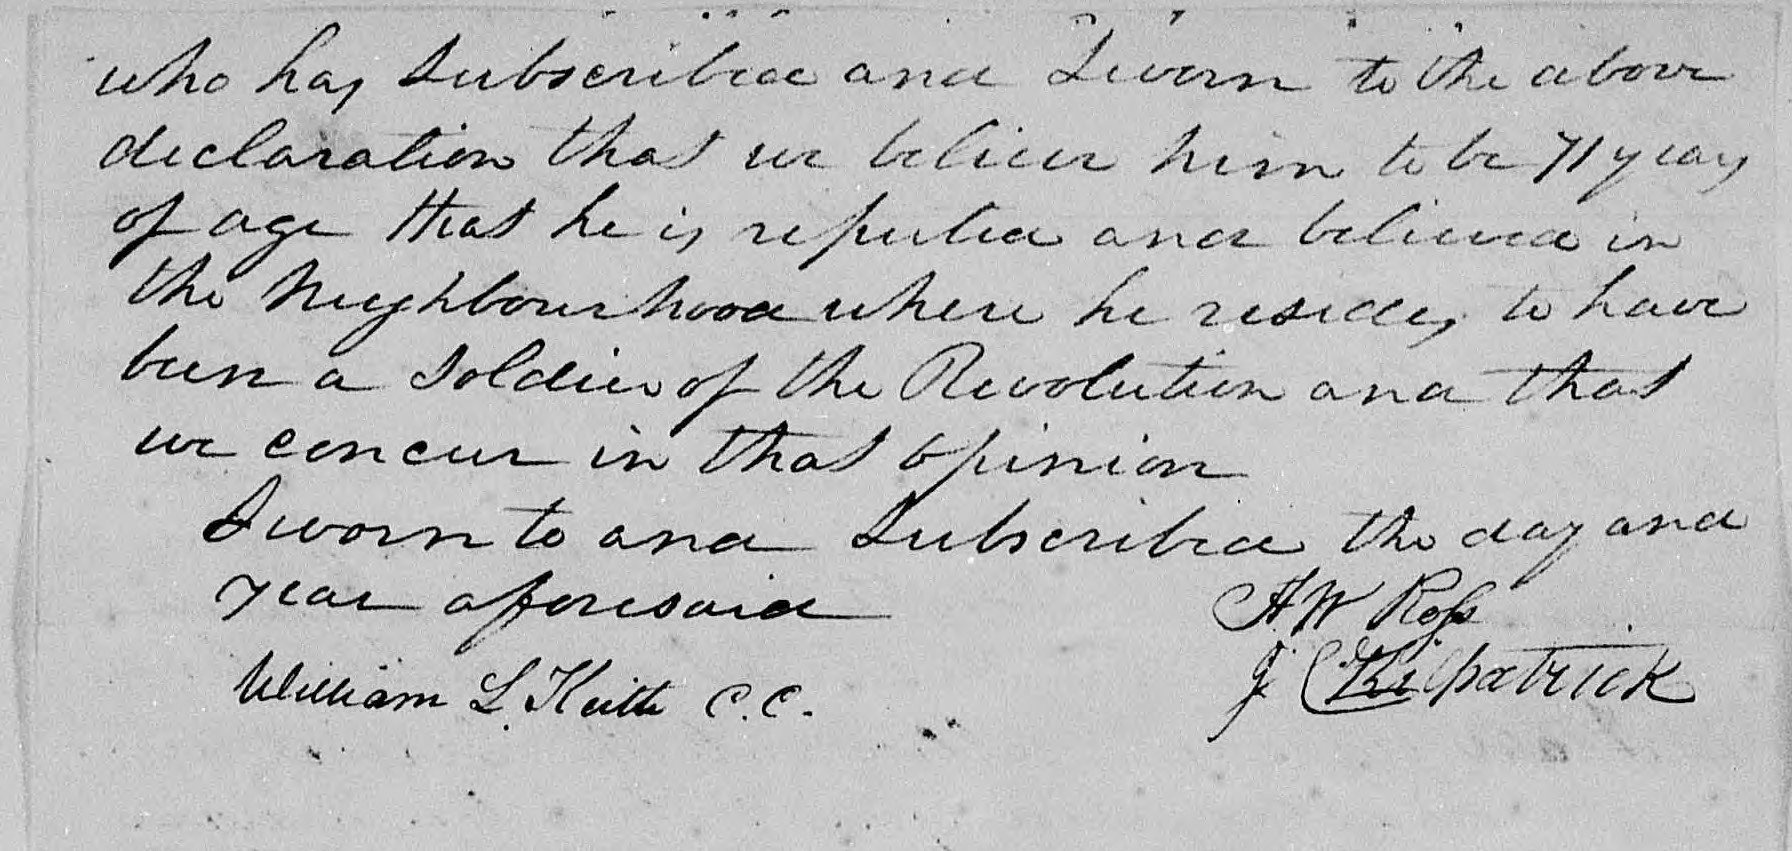 who has subscribed and Sworn to the above
declaration that we believe him to be 71 years
of age that he is reputed and believed in
the Neighbourhood where he resides to have
been a Soldier of the Revolution and that
we concur in that opinion
Sworn to and Subscribed the day and
year aforesaid
A. W Ross
J. Kilpatrick
William L. Keith C.C.